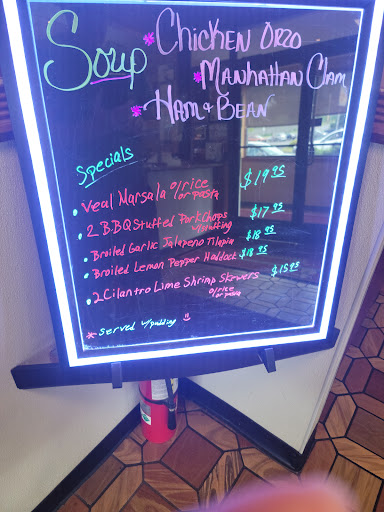 Soup *Chicken Orzo
*Manhattan Clam
*Ham & Bean
Specials
• Veal Marsala o/rice or pasta $19.95
• 2 BBQ Stuffed Pork Chops w/stuffing $17.95
• Broiled Garlic Jalapeno Tilapia $18.95
• Broiled Lemon Pepper Haddock $18.95
• 2 Cilantro Lime Shrimp Skewers o/rice or pasta $15.95
* served w/pudding